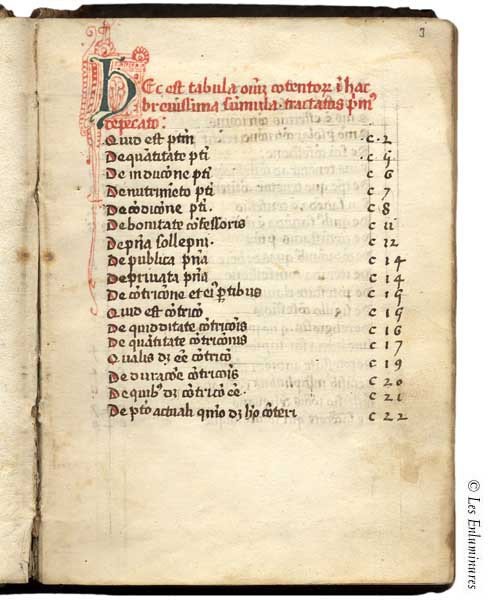 3
Hec est tabula oım̄ cōtentoꝝ ı hac
breuissima sum̄ula. tractatus pm̄ꝰ
de pecato:
Quid est ptm̄ c. 2
De quātitate pti c. 5
De inductōne pti c 6
De nutrimēto pti c 7
De cōdicōne pti. c 8
De bonitate cōfessoris c 11
De pn̄a sollepni. c 12
De publica pn̄a c 14
De priuata pn̄a c 14
De cōtricōne et eiꝰ ptibus c 15
Quid est cōtricō c 15
De quidditate cōtricōis c 16
De quātitate cōtricōnis c 17
Qualis dꝫ eē cōtricō c 19
De duracōe cōtricōis c 20
De quibꝰ dꝫ cōtricō eē. c 21
De ptō actuali quō dꝫ hō cōteri c 22
© Les Enluminures